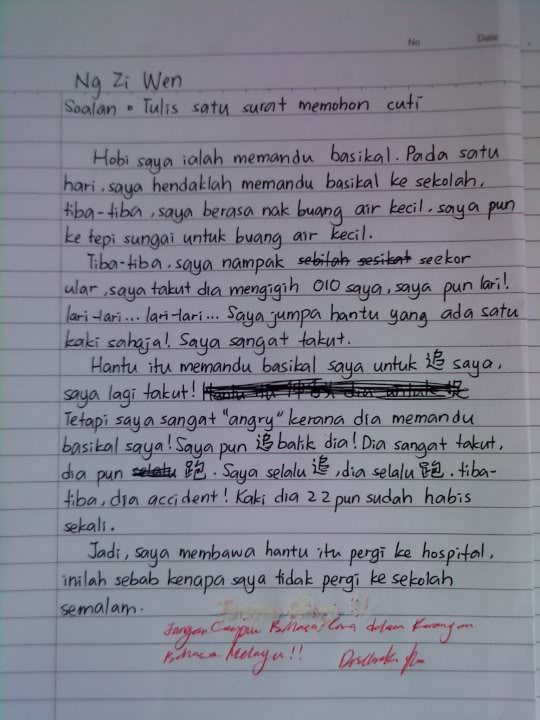 No Date
Ng Zi Wen
Soalan • Tulis satu surat memohon cuti
Hobi saya ialah memandu basikal. Pada satu
hari, saya hendaklah memandu basikal ke sekolah,
tiba-tiba, saya berasa nak buang air kecil, saya pun
ke tepi sungai untuk buang air kecil.
Tiba-tiba, saya nampak sebilah sesikat seekor
ular, saya takut dia mengigih 010 saya, saya pun lari!
lari-lari... lari-lari... Saya jumpa hantu yang ada satu
kaki sahaja! Saya sangat takut.
Hantu itu memandu basikal saya untuk 追 saya,
saya lagi takut! Hantu itu dia untuk 捉
Tetapi saya sangat "angry" kerana dia memandu
basikal saya! Saya pun 追 balik dia! Dia sangat takut,
dia pun selalu 跑. Saya selalu 追, dia selalu 跑. tiba-
tiba, dia accident! Kaki dia 22 pun sudah habis
sekali.
Jadi, saya membawa hantu itu pergi ke hospital,
inilah sebab kenapa saya tidak pergi ke sekolah
semalam.
Jangan Campur Bahasa Cina dalam Karangan
Bahasa Melayu!!